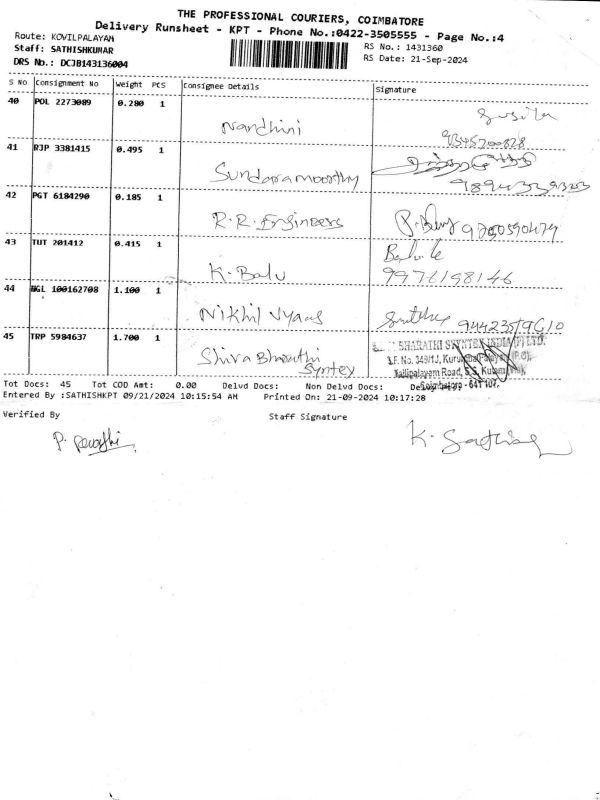 THE PROFESSIONAL COURIERS, COIMBATORE
Delivery Runsheet - KPT - Phone No.:0422-3505555 - Page No.:4
Route: KOVILPALAYAM
Staff: SATHISHKUMAR
DRS No.: DCJB143136004
RS No.: 1431360
RS Date: 21-Sep-2024
S NO Consignment No Weight PCS Consignee Details Signature
40 POL 2273089 0.280 1 Nandhini
41 RJP 3381415 0.495 1 Sundaramoorthy
42 PGT 6184290 0.185 1 R.R. Engineers
43 TUT 201412 0.415 1 K. Balu
9976198146
44 100162708 1.100 1 Nikhil Vyaas
45 TRP 5984637 1.700 1 Shiva Bharathi Syntex
BHARATHI SYNTEX INDIA (P) LTD.
S.F. No. 349/1J,
Coimbatore - 641 107.
Tot Docs: 45 Tot COD Amt: 0.00 Delvd Docs: Non Delvd Docs:
Entered By :SATHISHKPT 09/21/2024 10:15:54 AM Printed On: 21-09-2024 10:17:28
Verified By Staff Signature